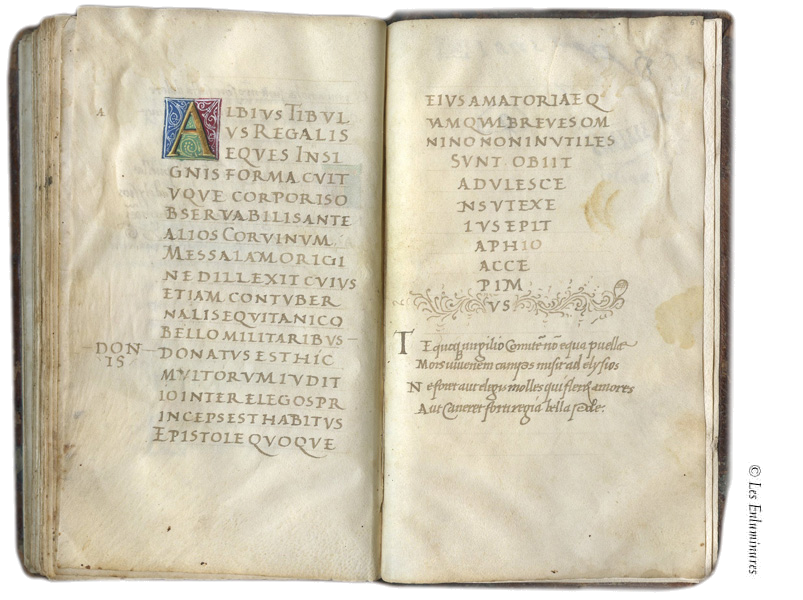 A
ALBIVS TIBVL
VS REGALIS
EQVES INSI
GNIS FORMA CVLT
VQVE CORPORIS O
BSERVABILIS ANTE
ALIOS CORVINVM
MESSALAM ORIGI
NE DILLEXIT CVIVS
ETIAM CONTVBER
NALIS EQVITANICO
BELLO MILITARIBVS
DON
IS
DONATVS EST HIC
MVLTORVM IVDIT
IO INTER ELEGOS PR
INCEPS EST HABITVS
EPISTOLE QVOQVE
EIVS AMATORIAE Q
VAM QVI BREVES OM
NINO NON INVTILES
SVNT OBIIT
ADVLESCE
NS VTEXE
IVS EPIT
APHIO
ACCE
PIM
VS
Te quoq uirgilio Comité nó equa puella
Mors iuuenem campos misit ad elysios
Ne foret aut elegis molles qui fleret amores
Aut Caneret forti regia bella pede:
© Les Enluminures